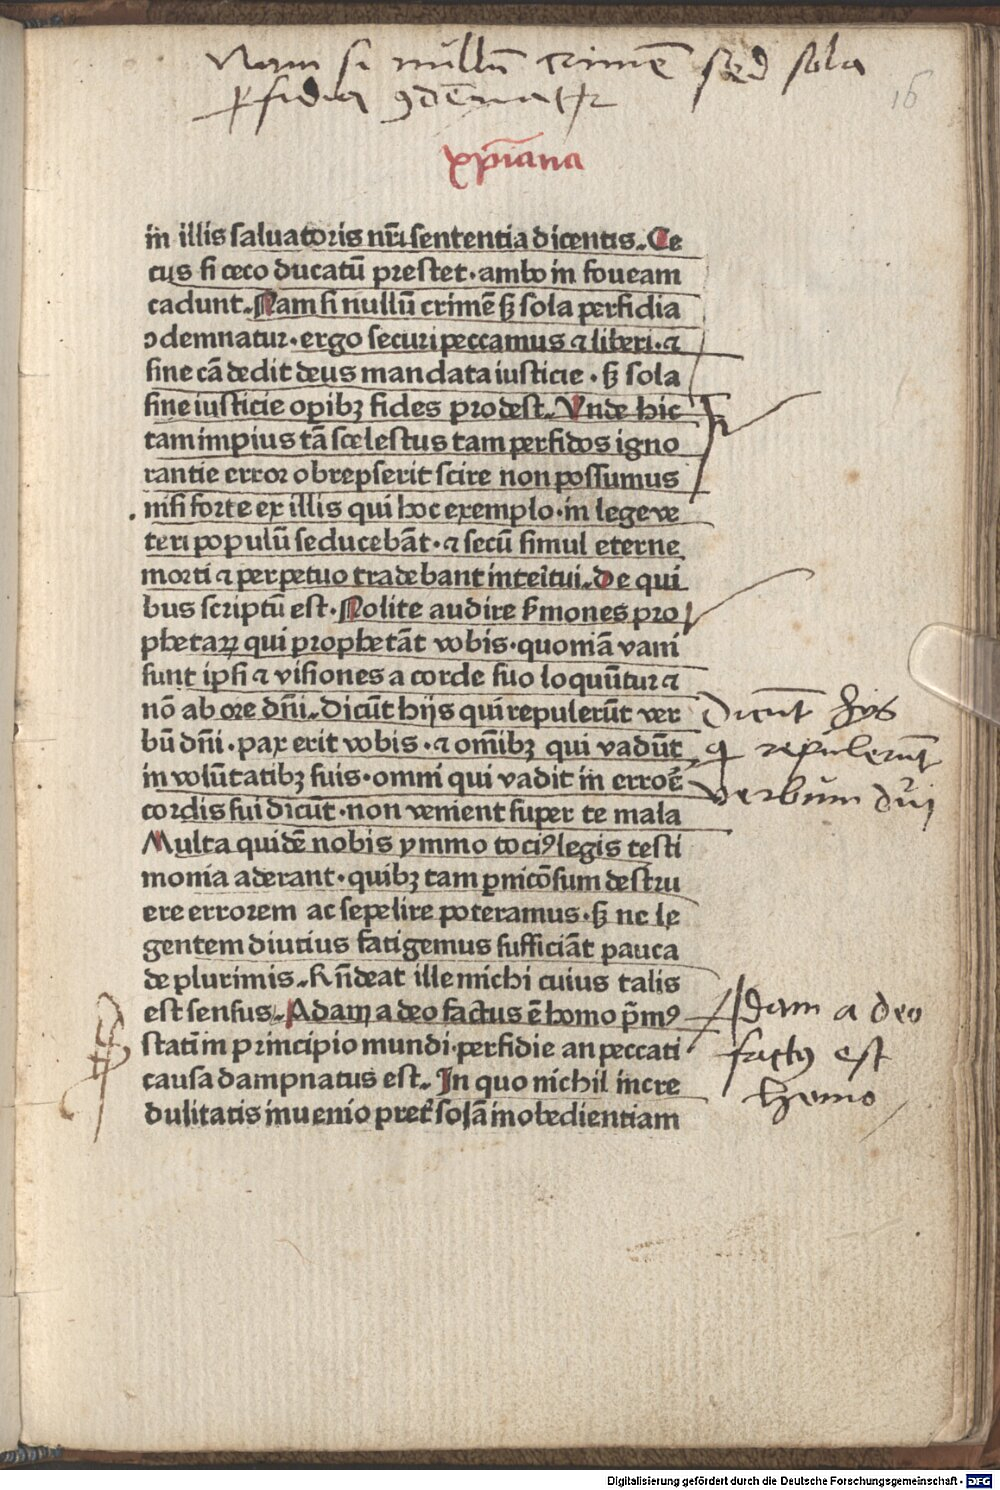 Nam si nullū crimē sed sola
ꝑfidia ꝯdēnatr̄
16
xp̄iana
in illis saluatoris nr̄i sententia dicentis. Ce
cus si ceco ducatū prestet· ambo in foueam
cadunt. Nam si nullū crimē sꝫ sola perfidia
ↄdemnatur· ergo securi peccamus ⁊ liberi· ⁊
sine cā dedit deus mandata iusticie· sꝫ sola
sine iusticie oꝑibꝫ fides prodest. Unde hic
tam impius tā scelestus tam perfidos igno
rantie error obrepserit scire non possumus
nisi forte ex illis qui hoc exemplo· in lege ve
teri populū seducebāt· ⁊ secū simul eterne
morti ⁊ perpetuo tradebant interitui. De qui
bus scriptū est· Nolite audire ẜmones pro
phetaꝝ qui prophetāt vobis· quoniā vani
sunt ipsi ⁊ visiones a corde suo loquūtur ⁊
nō ab ore dn̄i. Dicūt hijs qui repulerūt ver
bū dn̄i· pax erit vobis· ⁊ om̄ibꝫ qui vadūt
in volūtatibꝫ suis· omni qui vadit in erroē
cordis sui dicūt· non venient super te mala
Multa quidē nobis ymmo tociꝰ legis testi
monia aderant· quibꝫ tam ꝑnicōsum destru
ere errorem ac sepelire poteramus· sꝫ ne le
gentem diutius fatigemus sufficiāt pauca
de plurimis. Rn̄deat ille michi cuius talis
est sensus. Adam a deo factus ē homo p̄mꝰ
statī in principio mundi· perfidie an peccati
causa dampnatus est. In quo nichil incre
dulitatis inuenio pret̄ solā inobedientiam
Dicūt hijs
q̄ repulerūt
verbum dn̄i
Adam a deo
factꝰ est
homo
Digitalisierung gefördert durch die Deutsche Forschungsgemeinschaft - DFG